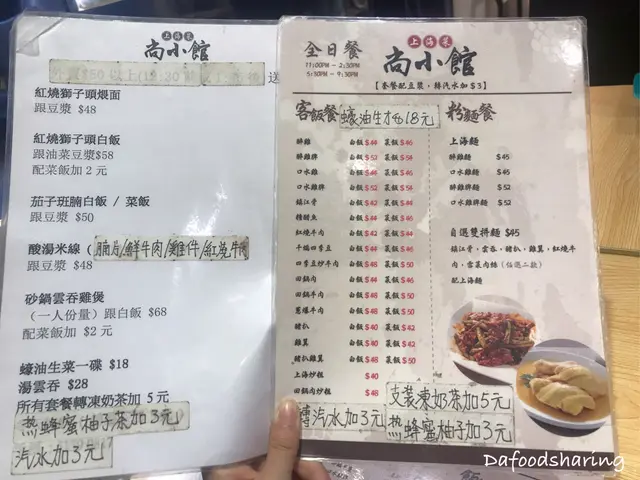 上海菜
尚小館
送
紅燒獅子頭煨面
跟豆漿 $48
紅燒獅子頭白飯
跟油菜豆漿$58
配菜飯加 2 元
茄子班腩白飯 / 菜飯
跟豆漿 $50
酸湯米線（腩片/鮮牛肉/雞件/紅燒牛肉
跟豆漿 $48
砂鍋雲吞雞煲
（一人份量）跟白飯 $68
配菜飯加 $2 元
蠔油生菜一碟 $18
湯雲吞 $28
所有套餐轉凍奶茶加 5 元
熱蜂蜜柚子茶加3元
汽水加3元
全日餐
11:00PM - 2:30PM
5:30PM - 9:30PM
上海菜
尚小館
【套餐配豆漿，轉汽水加$3】
客飯餐 蠔油生才加18元
醉雞 白飯 $44 菜飯 $46
醉雞髀 白飯 $52 菜飯 $54
口水雞 白飯 $44 菜飯 $46
口水雞髀 白飯 $52 菜飯 $54
鎮江骨 白飯 $42 菜飯 $44
燻鯇魚 白飯 $44 菜飯 $46
紅燒牛肉 白飯 $42 菜飯 $44
干煸四季豆 白飯 $44 菜飯 $46
四季豆炒牛肉 白飯 $48 菜飯 $50
回鍋肉 白飯 $44 菜飯 $46
回鍋牛肉 白飯 $48 菜飯 $50
蔥爆牛肉 白飯 $48 菜飯 $50
豬扒 白飯 $40 菜飯 $42
雞翼 白飯 $40 菜飯 $42
豬扒雞翼 白飯 $48 菜飯 $50
上海炒粗 $40
回鍋肉炒粗 $48
粉麵餐
上海麵
醉雞麵 $45
口水雞麵 $45
醉雞髀麵 $52
口水雞髀麵 $52
自選雙拼麵 $45
鎮江骨、雲吞、豬扒、雞翼、紅燒牛
肉、雪菜肉絲（任選二款）
配上海麵
轉汽水加3元
支裝凍奶茶加5元
熱蜂蜜柚子加3元
Dafoodsharing